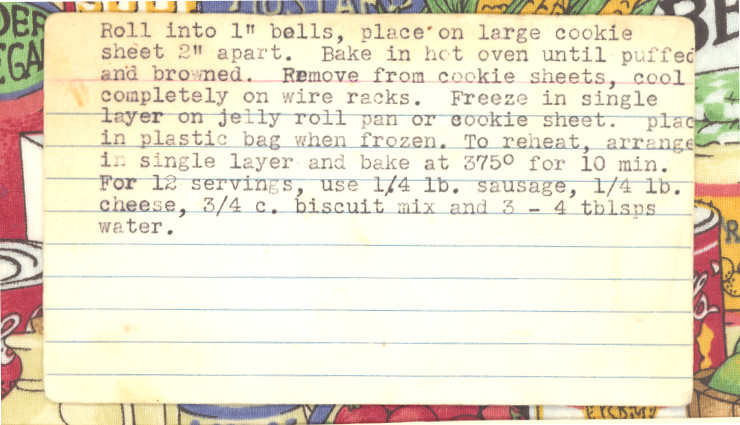 Roll into 1" balls, place on large cookie
sheet 2" apart. Bake in hot oven until puffed
and browned. Remove from cookie sheets, cool
completely on wire racks. Freeze in single
layer on jelly roll pan or cookie sheet. plac
in plastic bag when frozen. To reheat, arrange
in single layer and bake at 375º for 10 min.
For 12 servings, use 1/4 lb. sausage, 1/4 lb.
cheese, 3/4 c. biscuit mix and 3 - 4 tblsps
water.